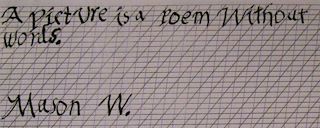 A picture is a Poem Without
words.
Mason W.